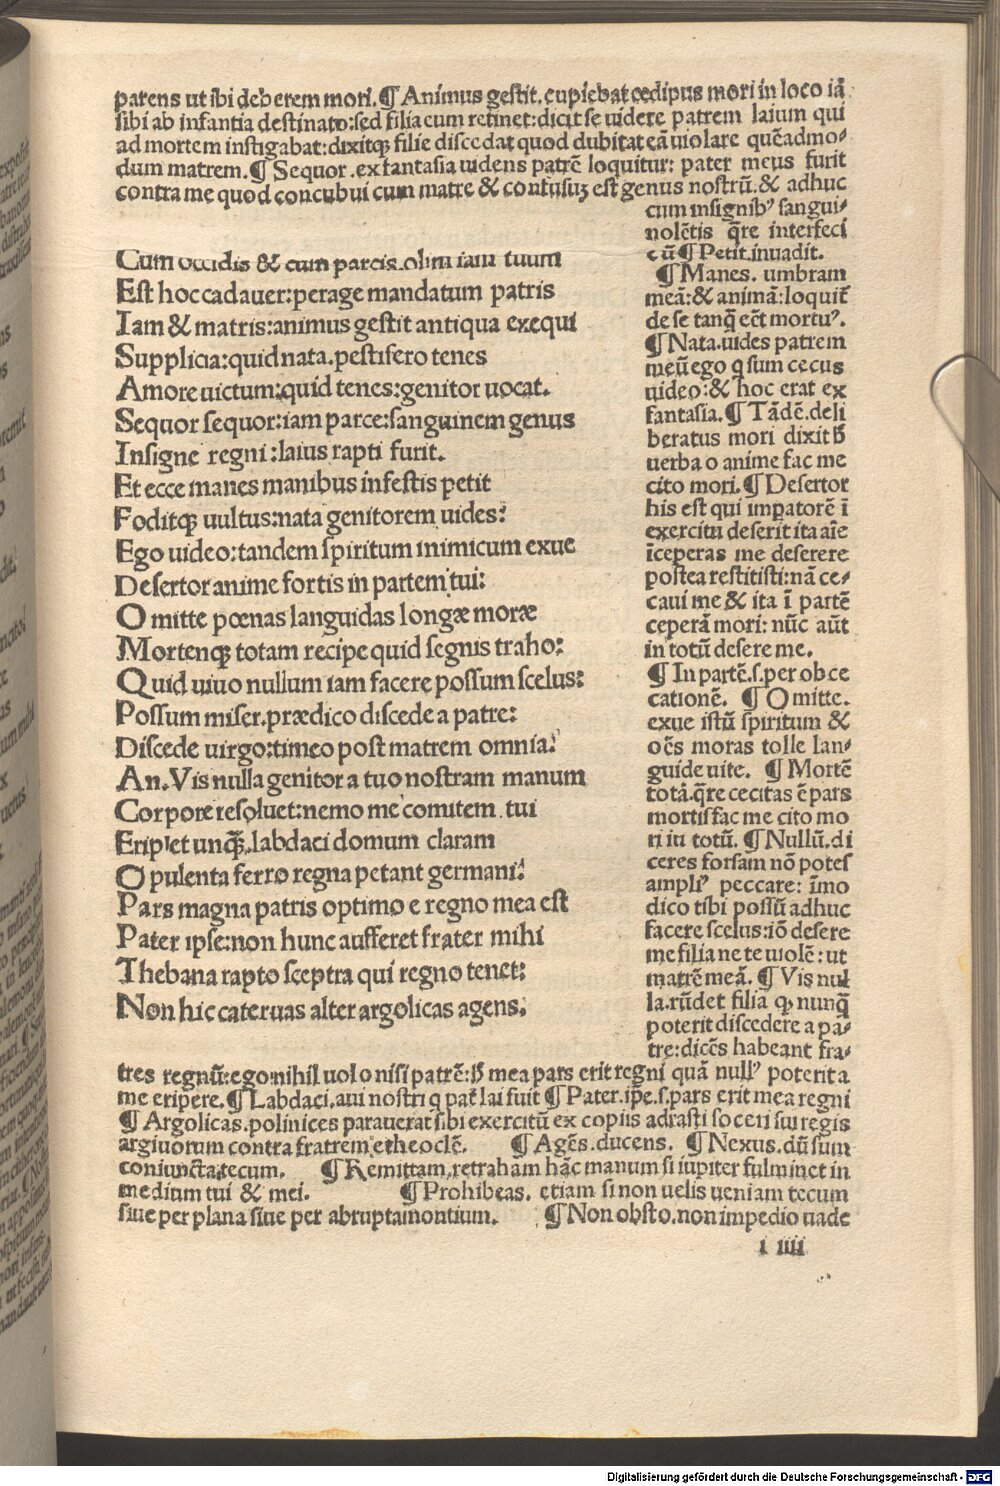 parens ut ibi deberem mori.¶ Animus gestit.cupiebat œdipus mori in loco iã
sibi ab infantia destinato:sed filia cum retinet:dicit se uidere patrem laium qui
ad mortem instigabat:dixitqꝫ filie discedat quod dubitat eã uiolare quẽadmo-
dum matrem.¶ Sequor.ex fantasia uidens patrẽ loquitur: pater meus furit
contra me quod concubui cum matre & confusuꝫ est genus nostrũ.& adhuc
cum insignibꝰ sangui-
nolẽtis q̃re interfeci
eũ¶ Petit.inuadit.
Cum occidis & cum parcis.olim iam tuum
Est hoc cadauer:perage mandatum patris
Iam & matris:animus gestit antiqua exequi
Supplicia:quid nata.pestifero tenes
Amore uictum:quid tenes:genitor uocat.
Sequor sequor:iam parce:sanguinem genus
Insigne regni:laius rapti furit.
Et ecce manes manibus infestis petit
Foditqꝫ uultus:nata genitorem uides?
Ego uideo:tandem spiritum inimicum exue
Desertor anime fortis in partem tui:
Omitte pœnas languidas longæ moræ
Mortenqꝫ totam recipe quid segnis traho:
Quid uiuo nullum iam facere possum scelus:
Possum miser.prædico discede a patre:
Discede uirgo:timeo post matrem omnia.
An.Vis nulla genitor a tuo nostram manum
Corpore resoluet:nemo me comitem tui
Eripiet unqꝫ.labdaci domum claram
Opulenta ferro regna petant germani:
Pars magna patris optimo e regno mea est
Pater ipse:non hunc aufferet frater mihi
Thebana rapto sceptra qui regno tenet:
Non hic cateruas alter argolicas agens:
¶ Manes. umbram
meã:& animã:loquit̃
de se tanq̃ eẽt mortuꝰ.
¶ Nata.uides patrem
meũ ego q sum cecus
uideo:& hoc erat ex
fantasia.¶ Tãdẽ.deli
beratus mori dixit h̃
uerba o anime fac me
cito mori.¶ Desertor
his est qui imꝑatorẽ ĩ
exercitu deserit ita aĩe
ĩceperas me deserere
postea restitisti:nã ce-
caui me & ita ĩ partẽ
ceperã mori: nũc aũt
in totũ desere me.
¶ In partẽ.s.per obce
cationẽ. ¶ Omitte.
exue istũ spiritum &
oẽs moras tolle lan-
guide uite. ¶ Mortẽ
totã.q̃re cecitas ẽ pars
mortis fac me cito mo
ri in totũ. ¶ Nullũ.di
ceres forsam nõ potes
ampliꝰ peccare: ĩmo
dico tibi possũ adhuc
facere scelus:iõ desere
me filia ne te uiolẽ:ut
matrẽ meã. ¶ Vis nul
la.rñdet filia ꝙ nunq̃
poterit discedere a pa-
tre:dicẽs habeant fra-
tres regnũ:ego nihil uolo nisi patrẽ:h̃ mea pars erit regni quã nullꝰ poterit a
me eripere.¶ Labdaci.aui nostri q pat̃ lai fuit ¶ Pater.ip̃e.s.pars erit mea regni
¶ Argolicas.polinices parauerat sibi exercitũ ex copiis adrasti soceri sui regis
argiuorum contra fratrem etheoclẽ. ¶ Agẽs.ducens. ¶ Nexus.dũ sum
coniuncta tecum. ¶ Remittam.retraham hãc manum si iupiter fulminet in
medium tui & mei. ¶ Prohibeas. etiam si non uelis ueniam tecum
siue per plana siue per abrupta montium. ¶ Non obsto.non impedio uade
i iiii
Digitalisierung gefördert durch die Deutsche Forschungsgemeinschaft - DFG